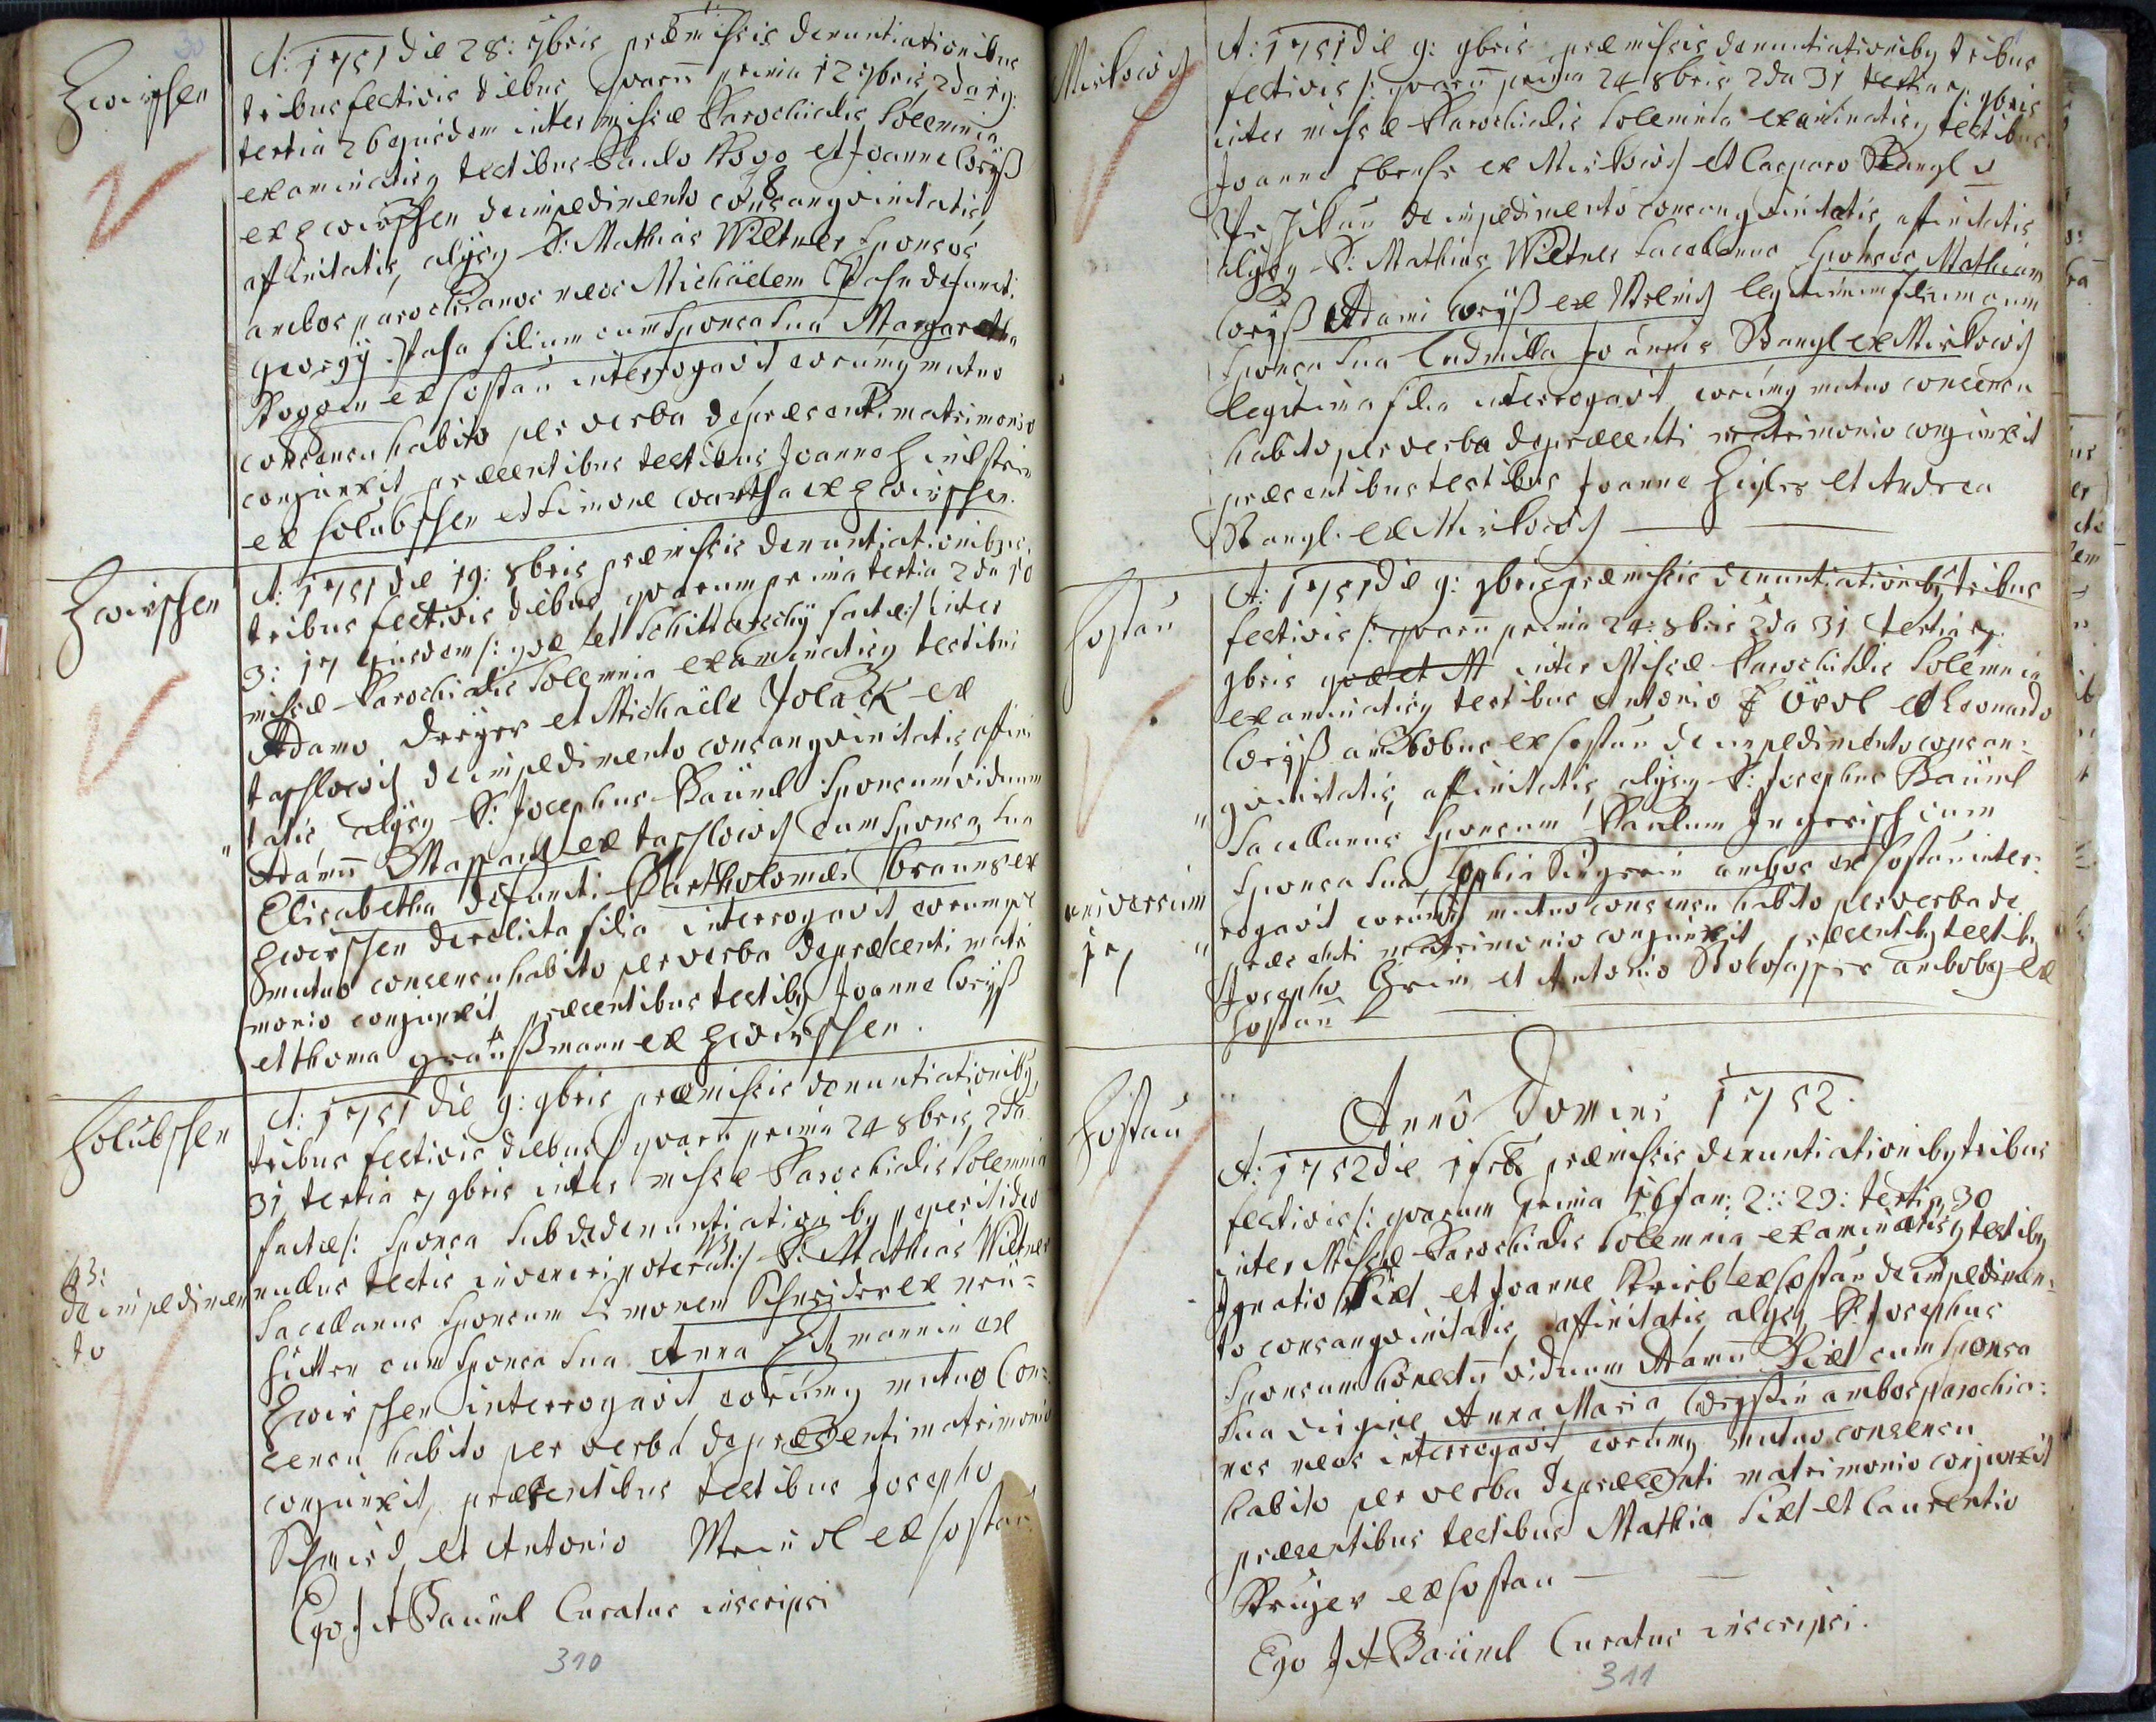 30
Zwirschen
A: 1751 die 28: 7bris præmissis denuntiationibus
tribus festivis diebus quarū prima 12 7bris, 2da 19:
tertia 26 ejusdem inter missæ Parochialis Solemnia
examinatisq testibus Paulo Rogg et Joanne Weÿß
ex Zwirschen de impedimento consangvinitatis
affinitatis, alÿsq P: Mathias Wiltner Sponsos
ambos parochianos meos Michäelem Pasa defuncti
Georgÿ Pasa filium cum Sponsa Sua Margaretha
Roggin ex Hostau interrogavit eorumq mutuo
consensu habito per verba de præsenti matrimonio
conjunxit præsentibus testibus Joanne
ex Holubschen et Simone Wartha ex Zwirschen.
Zwirschen
A: 1751 die 19: 8bris præmissis denuntiationibus
tribus festivis diebus quarum prima tertia 2da 10
3: 17 Ejusdem /: quæ et Schittarschÿ factæ:/ inter
missæ Parochialis Solemnia examinatisq testibus
Adamo Dreÿer et Michäele Polack ex
Taschlowitz de impedimento consangvinitatis affini
tatis, alÿsq P: Josephus Baüml Sponsum viduum
Adamū ex Taschlowitz cum Sponsa Sua
Elisabetha defuncti Bartholomæi Brauner ex
Zwirschen derelicta filia interrogavit eorumqe
mutuo consensu habito per verba de præsenti matri
monio conjunxit præsentibus testibq Joanne Weÿß
et Thoma Graußmann ex Zwirschen.
Holubschen
A: 1751 die 9: 9bris præmissis denuntiationibq
tribus festivis diebus /: quarū prima 24 8bris, 2da
31 tertia 7 9bris inter missæ Parochialis Solemnia
factæ /: Sponsa Sub denuntiationibq ideo
nullus testis inveniri poterat :/ P: Mathias Wiltner
N3:
de impedimen
to
Sacellanus Sponsum Simonem Schneider ex Neü=
hütten cum Sponsa Sua Anna in ex
Zwirschen interrogavit eorumq mutuo Con=
sensu habito per verba de præsenti matrimonio
conjunxit, præsentibus testibus Josepho
Schmid et Antonio ex Hostau
Ego J A Baüml Curatus inscripsi
310
Mirkowitz
A: 1751 die 9: 9bris præmissis denuntiationibq tribus
festivis /: quarū prima 24 8bris 2da 31 tertia 7: 9bris
inter missæ Parochialis Solemnia examinatisq testibus
Joanne ex Mirkowitz et Casparo Stangl
de impedimento consangvinitatis affinitatis
alÿsq P: Mathias Wiltner Sacellanus Sponsos Mathiam
Weÿß Adami Weÿß ex legitimum filium cum
Sponsa Sua Ludmilla Joannis Stangl ex Mirkowitz
legitima filia interrogavit eorumq mutuo consensu
habito per verba de præsenti matrimonio conjunxit
præsentibus testibus Joanne et Andrea
Stangl ex Mirkowitz
Hostau
A: 1751 die 9: 9bris præmissis denuntiationibq tribus
festivis /: quarū prima 24: 8bris 2da 31 tertia 7:
9bris quæ et inter Missæ Parochialis Solemnia
examinatisq testibus Antonio et Leonardo
Weÿß ambobus ex Hostau de impedimento consan=
gvinitatis, affinitatis, alÿsq P: Josephus Baüml
Sacellanus Sponsum Paulum cum
Sponsa Sua Sophia ambos ex Hostau inter=
universim
17
rogavit eorumq mutuo consensu habito per verba de
præsenti matrimonio conjunxit, præsentibq testibq
Josepho et Antonio ambobq ex
Hostau
Anno Domini 1752.
Hostau
A: 1752 die 1 feb præmissis denuntiationibq tribus
festivis /: quarum prima 16 Jan: 2:: 23: tertia 30
inter Missæ Parochialis Solemnia examinatisq testibq
Ignatio Sixt et Joanne ex Hostau de impedimen=
to consangvinitatis, affinitatis, alÿsq P: Josephus
Sponsum honestū viduum Adamū Sixt cum Sponsa
Sua virgine Anna Maria Weÿssin ambos parochia=
nos meos interrogavit eorumq mutuo consensu
habito per verba de præsenti matrimonio conjunxit
præsentibus testibus Mathia Sixt et Laurentio
ex Hostau
Ego J A Baüml Curatus inscripsi.
311